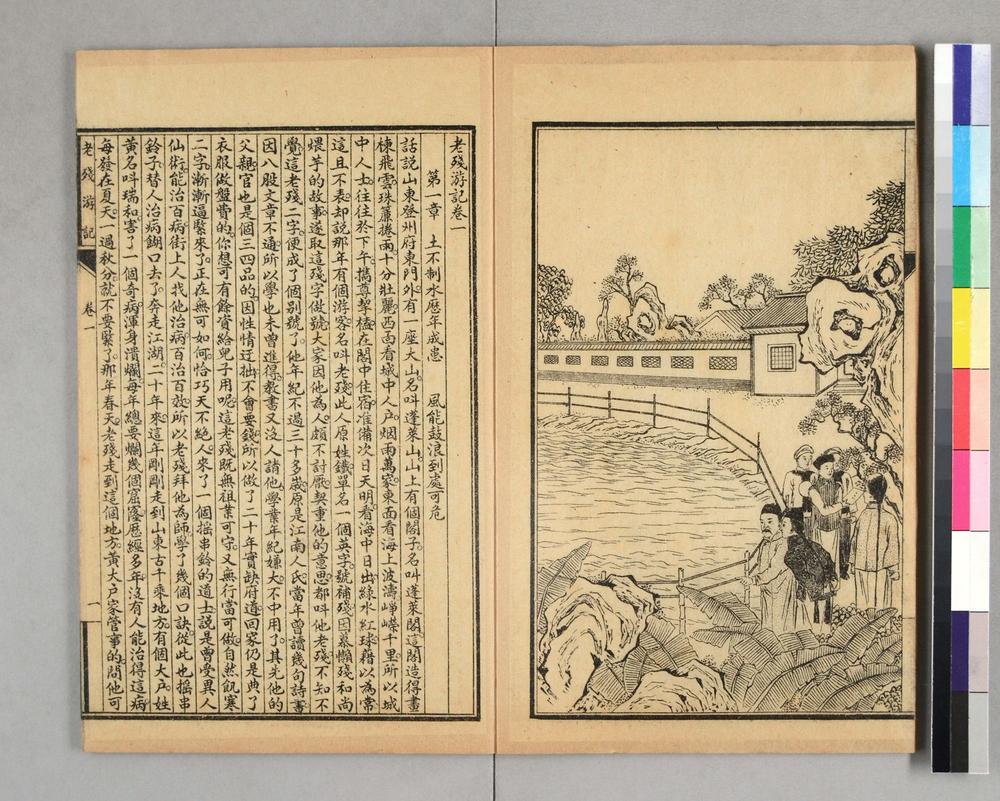 老殘游記卷一
第一章　土不制水歷年成患　風能鼓浪到處可危
話說山東登州府東門外有一座大山名叫蓬萊山山上有個閣子名叫蓬萊閣這閣造得畫
棟飛雲珠簾捲雨十分壯麗西面看城中人戶烟雨萬家東面看海上波濤崢嶸千里所以城
中人士往往於下午攜尊挈榼在閣中住宿准備次日天明看海中日出綠水紅球藉以為常
這且不表却說那年有個游客名叫老殘此人原姓鐵單名一個英字號補殘因慕懶殘和尚
煨芋的故事遂取這殘字做號大家因他為人頗不討厭契重他的意思都叫他老殘不知不
覺這老殘二字便成了個別號了他年紀不過三十多歲原是江南人氏當年曾讀幾句詩書
因八股文章不通所以學也未曾進得教書又沒人請他學業年紀嫌大不中用了其先他的
父親官也是個三四品的因性情迂拙不會要錢所以做了二十年實缺府道回家仍是典了
衣服做盤費的你想可有餘資給兒子用呢這老殘既無祖業可守又無行當可做自然飢寒
二字漸漸逼緊來了正在無可如何恰巧天不絕人來了一個搖串鈴的道士說是曾受異人
仙術能治百病街上人找他治病百治百效所以老殘拜他為師學了幾個口訣從此也搖串
鈴子替人治病餬口去了奔走江湖二十年來這年剛剛走到山東古千乘地方有個大戶姓
黃名叫瑞和害了一個奇病渾身潰爛每年總要爛幾個窟窿歷經多年沒有人能治得這病
每發在夏天一過秋分就不要緊了那年春天老殘走到這個地方黃大戶家管事的問他可
老殘游記
卷一
一